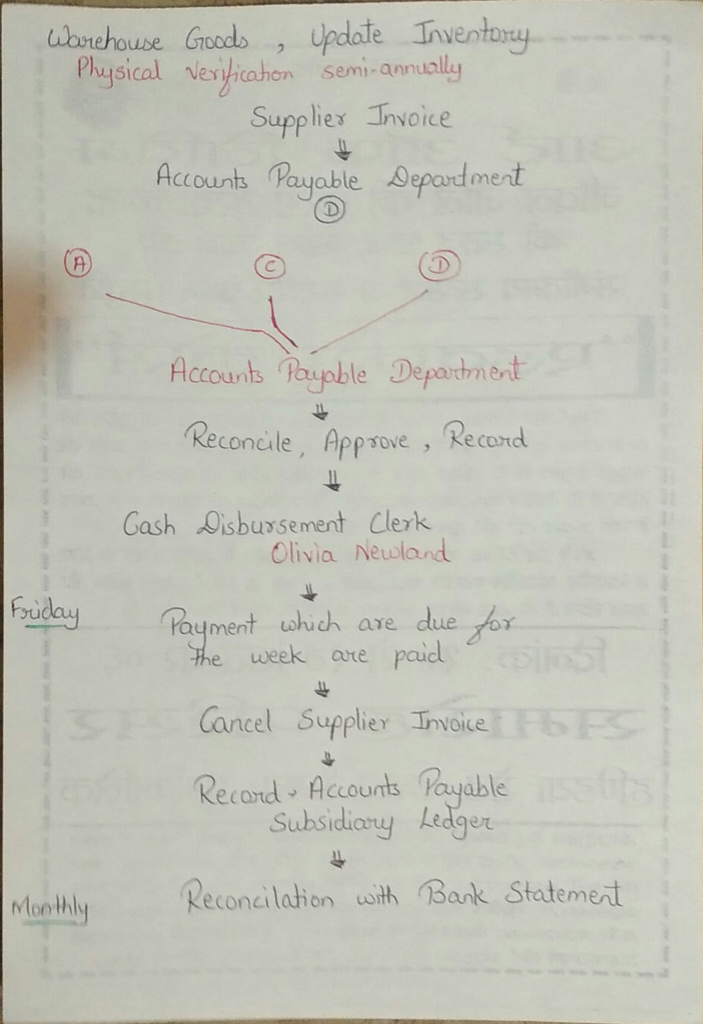 Warehouse Goods , Update Inventory
Physical Verification semi-annually
Supplier Invoice
⇓
Accounts Payable Department
Ⓓ
Ⓐ Ⓒ Ⓓ
Accounts Payable Department
⇓
Reconcile, Approve , Record
⇓
Cash Disbursement Clerk
Olivia Newland
⇓
Friday Payment which are due for
the week are paid
⇓
Cancel Supplier Invoice
⇓
Record - Accounts Payable
Subsidiary Ledger
⇓
Monthly Reconcilation with Bank Statement